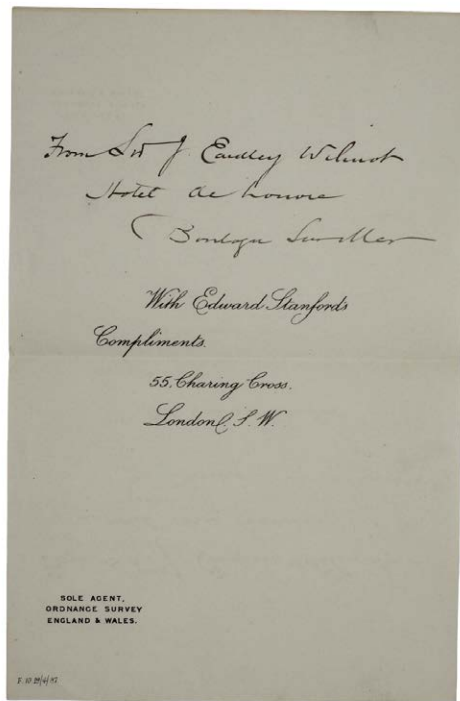 From Sir J. Eardley Wilmot
Hotel de Louvre
Boulogne Sur Mer
With Edward Stanford's
Compliments.
55, Charing Cross,
London, S. W.
SOLE AGENT,
ORDNANCE SURVEY
ENGLAND & WALES.